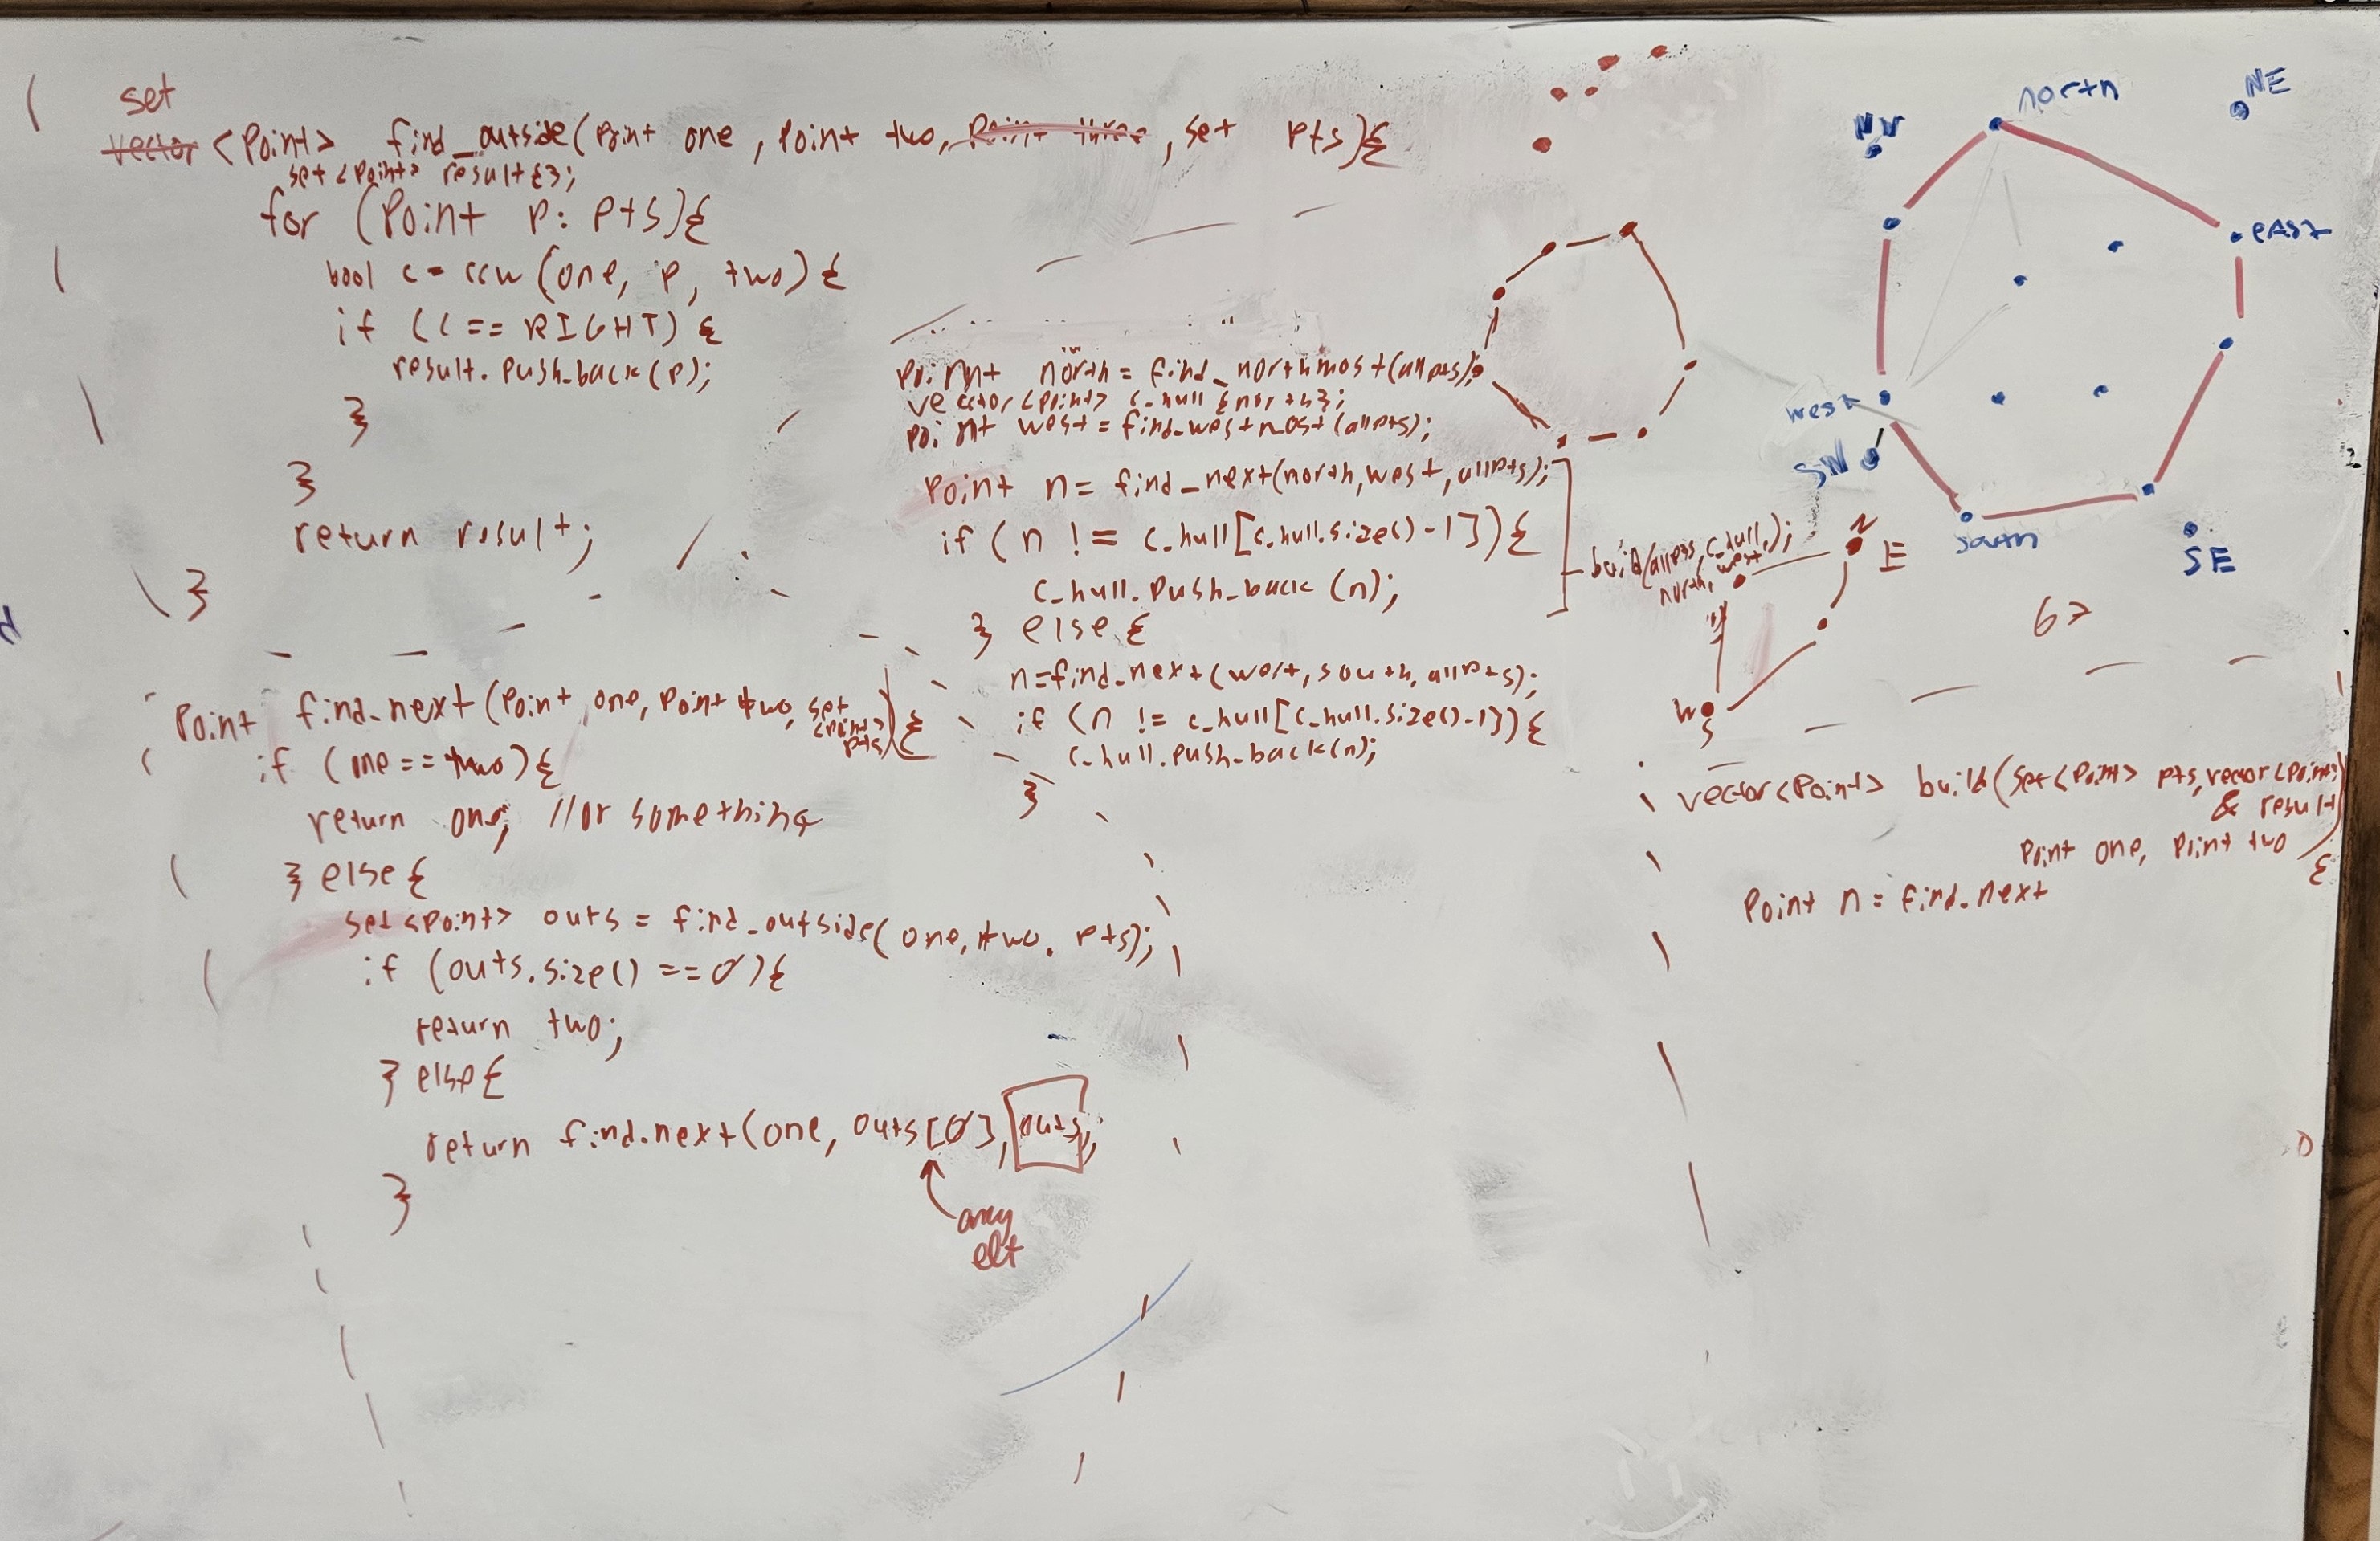 set
vector <Point> find_outside(Point one, Point two, Point three, set pts){
set<Point> result{};
for (Point p: pts){
bool c = ccw (one, p, two) {
if (c == RIGHT) {
result.push_back(p);
}
}
return result;
}
Point find_next(Point one, Point two, set <Point> pts){
if (one == two){
return one; //or something
} else {
set<Point> outs = find_outside(one, two, pts);
if (outs.size() == 0){
return two;
} else {
return find_next(one, outs[0], outs;
}
any
elt
Point north = find_northmost(allpts);
vector<Point> c_hull {north};
Point west = find_westmost(allpts);
Point n = find_next(north, west, allpts);
if (n != c_hull[c_hull.size()-1]){
c_hull.push_back(n);
} else {
n = find_next(west, south, allpts);
if (n != c_hull[c_hull.size()-1]){
c_hull.push_back(n);
}
build(allpts, c_hull,);
north, west
N
E
W
S
north
NE
NW
east
west
SW
south
SE
vector<Point> build(set<Point> pts, vector<Point>
& result
Point one, Point two) {
Point n = find_next